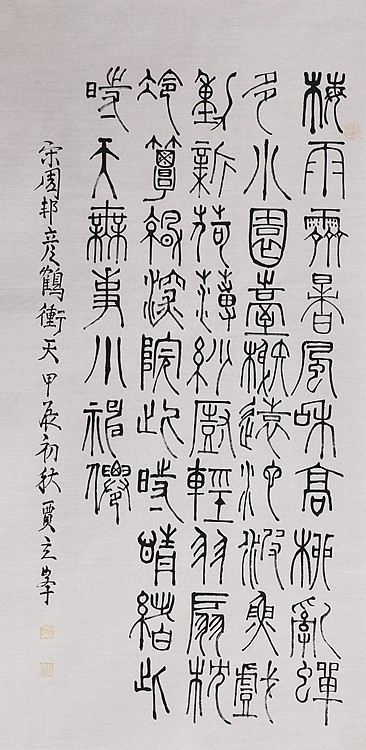 梅雨霽暑風和高柳亂蟬
多小園臺榭遠池波魚戲
動新荷薄紗廚輕羽扇枕
冷簟深院此時情緒此
時天無事小神僊
宋周邦彥鶴衝天甲辰初秋賈立峯